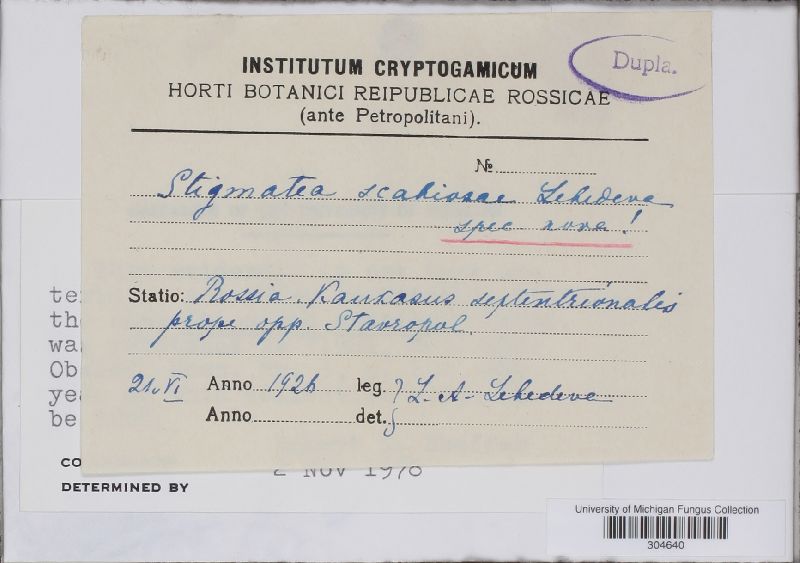 INSTITUTUM CRYPTOGAMICUM
Dupla.
HORTI BOTANICI REIPUBLICAE ROSSICAE
(ante Petropolitani).
№
Stigmatea scabiosae Lebedeva
spec nova!
Statio: Rossia. Kaukasus septentrionalis
prope opp. Stavropol.
21. VI Anno 1926 leg. L. A. Lebedeva
Anno det.
te
th
wa
Ob
yea
be
CO
2 NOV 1976
DETERMINED BY
University of Michigan Fungus Collection
304640